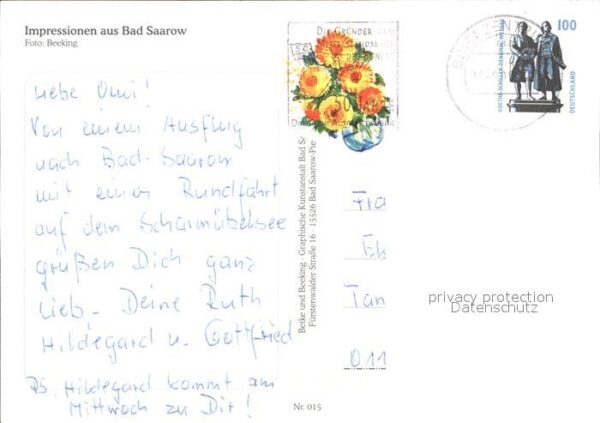 Impressionen aus Bad Saarow
Foto: Beeking
Liebe Omi!
Von einem Ausflug
nach Bad-Saarow
mit einer Rundfahrt
auf dem Scharmützelsee
grüßen Dich ganz
lieb - Deine Ruth
Hildegard u. Gottfried
PS. Hildegard kommt am
Mittwoch zu Dir!
Betke und Beeking Graphische Kunstanstalt Bad S
Fürstenwalder Straße 16 · 15526 Bad Saarow-Pie
Nr. 015
DIE GRÜNDER
50 JAHRE
BRIEFZENTRUM
100
DEUTSCHLAND
GOETHE-SCHILLER-DENKMAL WEIMAR
Fra
Eh
Tan
011
privacy protection
Datenschutz